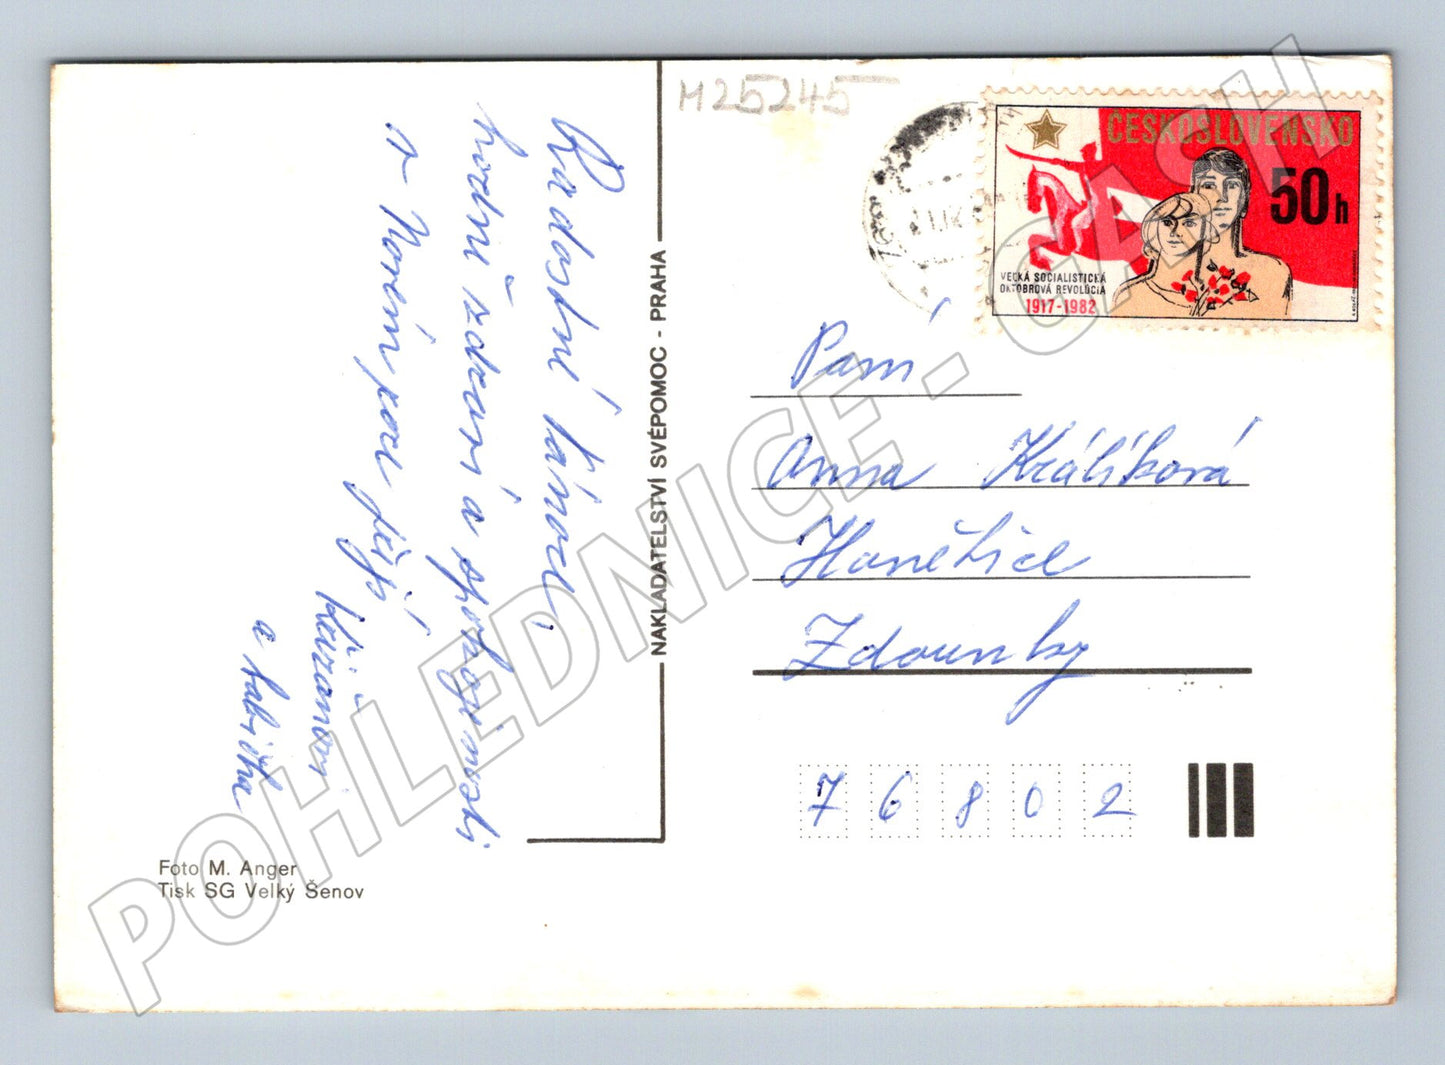 M25245
ČESKOSLOVENSKO
50h
VEĽKÁ SOCIALISTICKÁ
OKTÓBROVÁ REVOLÚCIA
1917-1982
Radostní Vánoce,
hodně zdraví a spokojenosti
v Novém roce přejí
a babička
NAKLADATELSTVÍ SVÉPOMOC - PRAHA
Foto M. Anger
Tisk SG Velký Šenov
Paní
Anna Králíková
Honětice
Zdounky
76802
POHLEDNICE - CASH